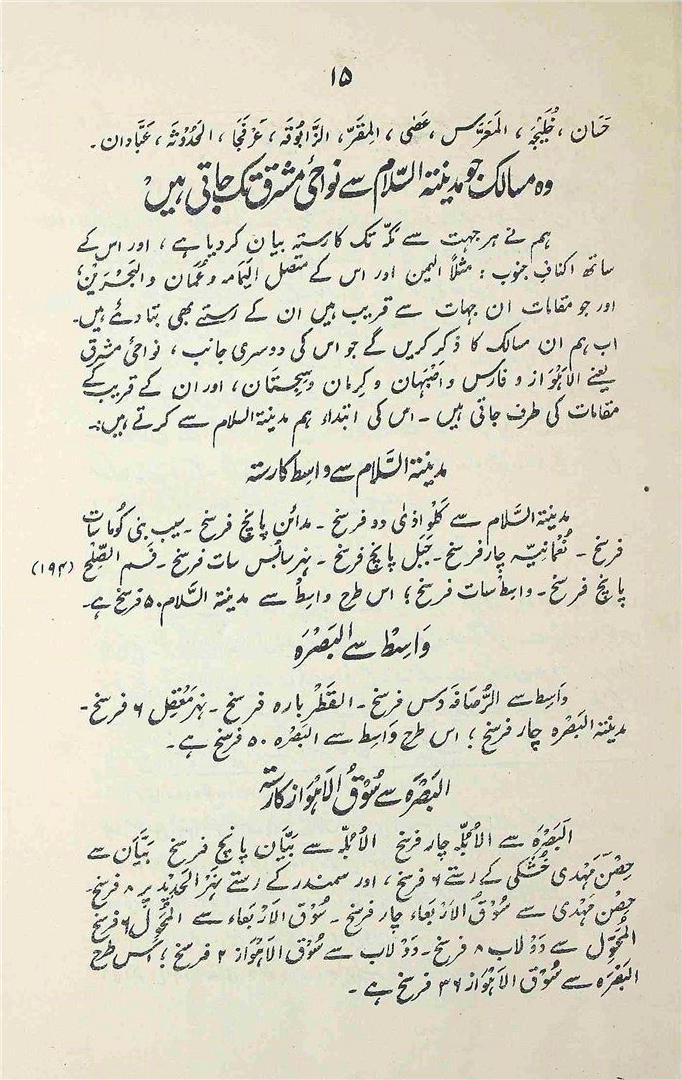 ۱۵
حَسان، خُلَیْجَہ، المَعَرّس، عَصٰی، المِقَرّ، الزَّابُوقَہ، عَرْفَجَا، الحَدُوثَہ، عَبَّادان۔
وہ مسالک جو مدینۃ السّلام سے نواحیٔ مشرق تک جاتی ہیں
ہم نے ہر جہت سے مکّہ تک کا رستہ بیان کردیا ہے، اور اس کے
ساتھ اکنافِ جنوب: مثلاً الیمن اور اس کے متصل الیَمامہ وعُمَان والبَحْرَین،
اور جو مقامات ان جہات سے قریب ہیں ان کے رستے بھی بتا دئے ہیں۔
اب ہم ان مسالک کا ذکر کریں گے جو اس کی دوسری جانب، نواحیٔ مشرق
یعنے الاَہْوَاز و فارس و اصْبَہان و کِرمان و سِجِسْتَان، اور ان کے قریب کے
مقامات کی طرف جاتی ہیں ۔ اس کی ابتداء ہم مدینۃ السلام سے کرتے ہیں:۔
مدینۃ السَّلام سے واسِط کا رستہ
مدینۃ السَّلام سے کَلْوَاذیٰ دو فرسخ ۔ مدائن پانچ فرسخ ۔ سِیب بنی کُوماسات
فرسخ ۔ نُعْمَانیّہ چار فرسخ ۔ جَبُّل پانچ فرسخ ۔ نہر سابُس سات فرسخ ۔ فَم الصِّلْح (۱۹۴)
پانچ فرسخ ۔ واسِط سات فرسخ؛ اس طرح واسِط سے مدینۃ السَّلام ۵۰ فرسخ ہے۔
وَاسِطْ سے البَصْرَہ
واسِط سے الرُّصَافَہ دس فرسخ ۔ القَطْر بارہ فرسخ ۔ نہر مَعْقِل ۶ فرسخ ۔
مدینۃ البَصْرَہ چار فرسخ؛ اس طرح وَاسِط سے البَصْرَہ ۵۰ فرسخ ہے ۔
البَصْرَہ سے سُوْقُ الاَہْوَاز کا رستہ
البَصْرَہ سے الاُبُلّہ چار فرسخ الاُبُلّہ سے بَیَّان پانچ فرسخ بَیَّان سے
حِصْنِ مَہْدی خُشکی کے رستے ۶ فرسخ، اور سمندر کے رستے نَہْرُ الحَدِید پر ۸ فرسخ۔
حِصْن مَہْدی سے سُوْقُ الاَرْبَعاء چار فرسخ ۔ سُوْق الاَرْبَعاء سے المُحَوَّل ۶ فرسخ
المُحَوَّل سے دَوْلاب ۸ فرسخ ۔ دَوْلاب سے سُوْق الاَہْوَاز ۲ فرسخ؛ اس طرح
البَصْرَہ سے سُوْق الاَہْوَاز ۳۶ فرسخ ہے ۔